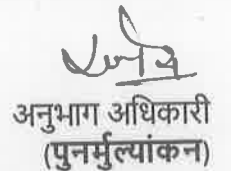 अनुभाग अधिकारी
(पुनर्मुल्यांकन)